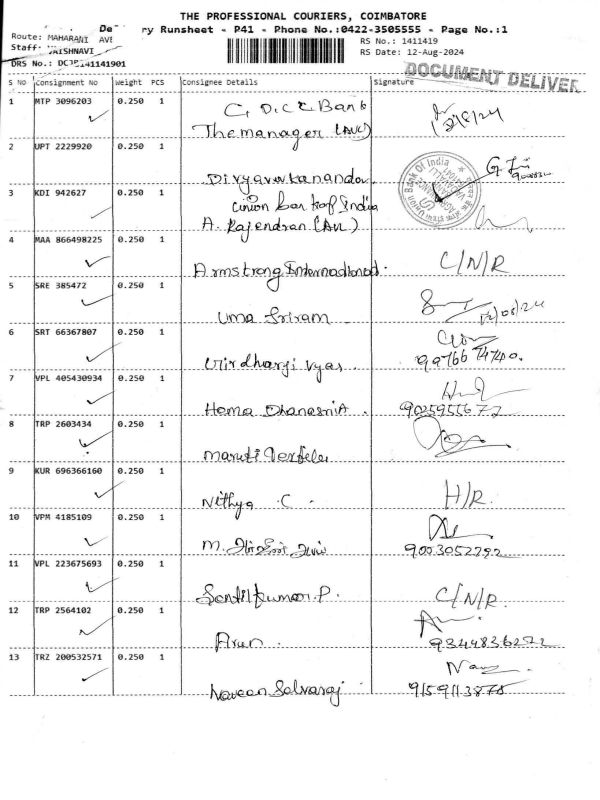 THE PROFESSIONAL COURIERS, COIMBATORE
ry Runsheet - P41 - Phone No.:0422-3505555 - Page No.:1
Route: MAHARANI AVE
RS No.: 1411419
Staff: VAISHNAVI
RS Date: 12-Aug-2024
DRS No.:
DOCUMENT DELIVER
S NO Consignment No Weight PCS Consignee Details Signature
1 MTP 3096203 0.250 1 C, D.C.C Bank
The manager (AVC)
2 UPT 2229920 0.250 1
3 KDI 942627 0.250 1 union bank of India
A. Rajendran
Union Bank Of India
4 MAA 866498225 0.250 1 Armstrong International. C/N/R
5 SRE 385472 0.250 1 Uma Sriram 12/08/24
6 SRT 66367807 0.250 1 Vyas
7 VPL 405430934 0.250 1 Hema
8 TRP 2603434 0.250 1 Maruti
9 KUR 696366160 0.250 1 Nithya .C. H/R.
10 VPM 4185109 0.250 1 M.
9003052292
11 VPL 223675693 0.250 1 Sentilkumar.P. C/N/R.
12 TRP 2564102 0.250 1 Arun. 9344836272
13 TRZ 200532571 0.250 1 Naveen Selvaraj 9159113875